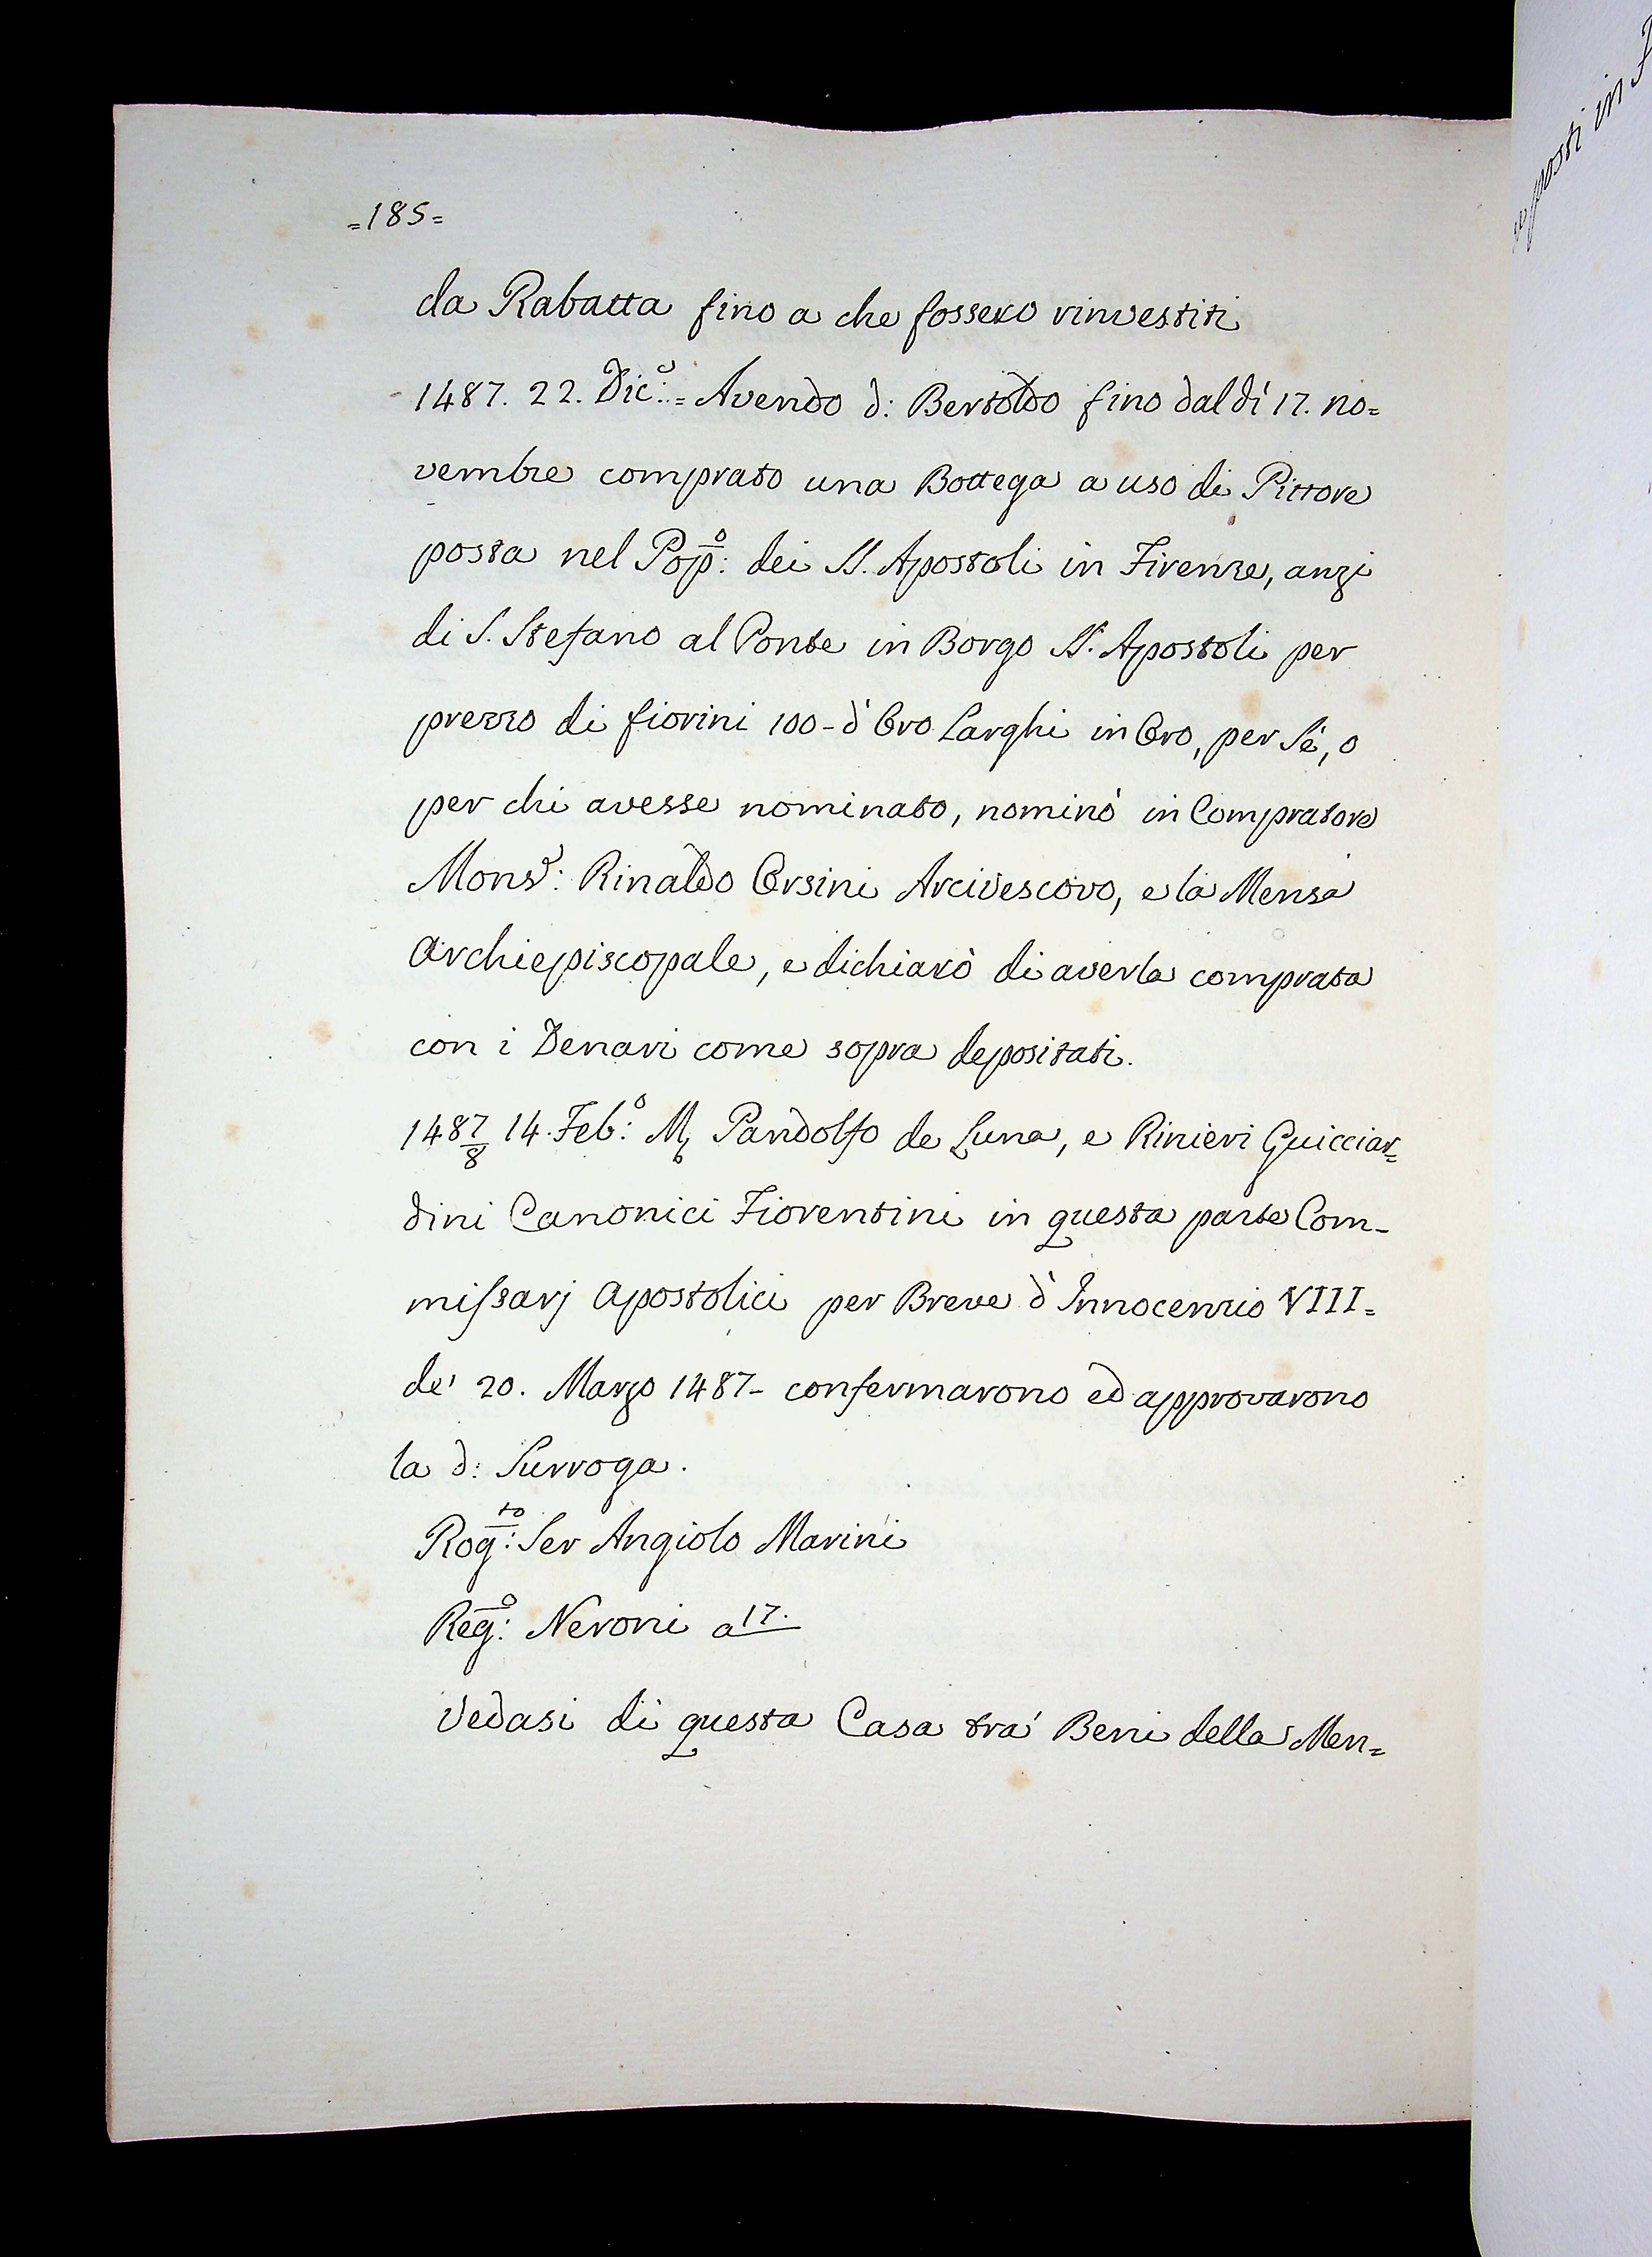 =185=
da Rabatta fino a che fossero rinvestiti
1487. 22. Dic.e:= Avendo d: Bertoldo fino dal dì 17. no=
vembre comprato una Bottega a uso di Pittore
posta nel Pop.o: dei SS. Apostoli in Firenze, anzi
di S. Stefano al Ponte in Borgo SS. Apostoli per
prezzo di fiorini 100- d'Oro Larghi in Oro, per Sè, o
per chi avesse nominato, nominò in Compratore
Mons.r: Rinaldo Orsini Arcivescovo, e la Mensa
Archiepiscopale, e dichiarò di averla comprata
con i Denari come sopra depositati.
1487/8 14. Feb.o: M. Pandolfo de Luna, e Rinieri Guicciar=
dini Canonici Fiorentini in questa parte Com-
missarj Apostolici per Breve d'Innocenzio VIII=
de' 20. Marzo 1487- confermarono ed approvarono
la d: Surroga.
Rog.to: Ser Angiolo Marini
Reg.o: Neroni a 17.
Vedasi di questa Casa tra' Beni della Men=
posti in